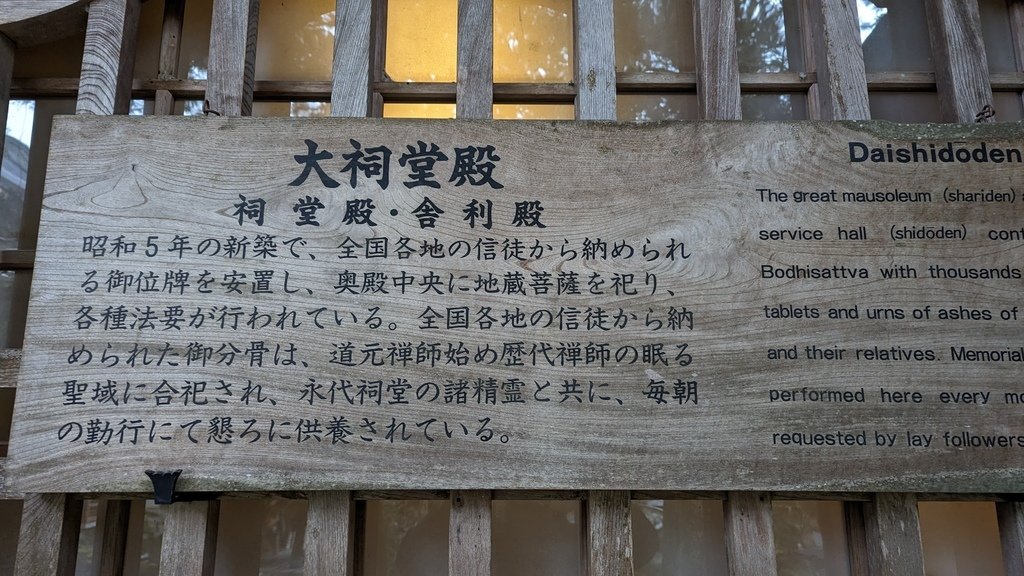 大祠堂殿
祠堂殿・舎利殿
昭和5年の新築で、全国各地の信徒から納められ
る御位牌を安置し、奥殿中央に地蔵菩薩を祀り、
各種法要が行われている。全国各地の信徒から納
められた御分骨は、道元禅師始め歴代禅師の眠る
聖域に合祀され、永代祠堂の諸精霊と共に、毎朝
の勤行にて懇ろに供養されている。
Daishidōden
The great mausoleum (shariden)
service hall (shidōden)
Bodhisattva with thousands
tablets and urns of ashes of
and their relatives. Memorial
performed here every
requested by lay followers